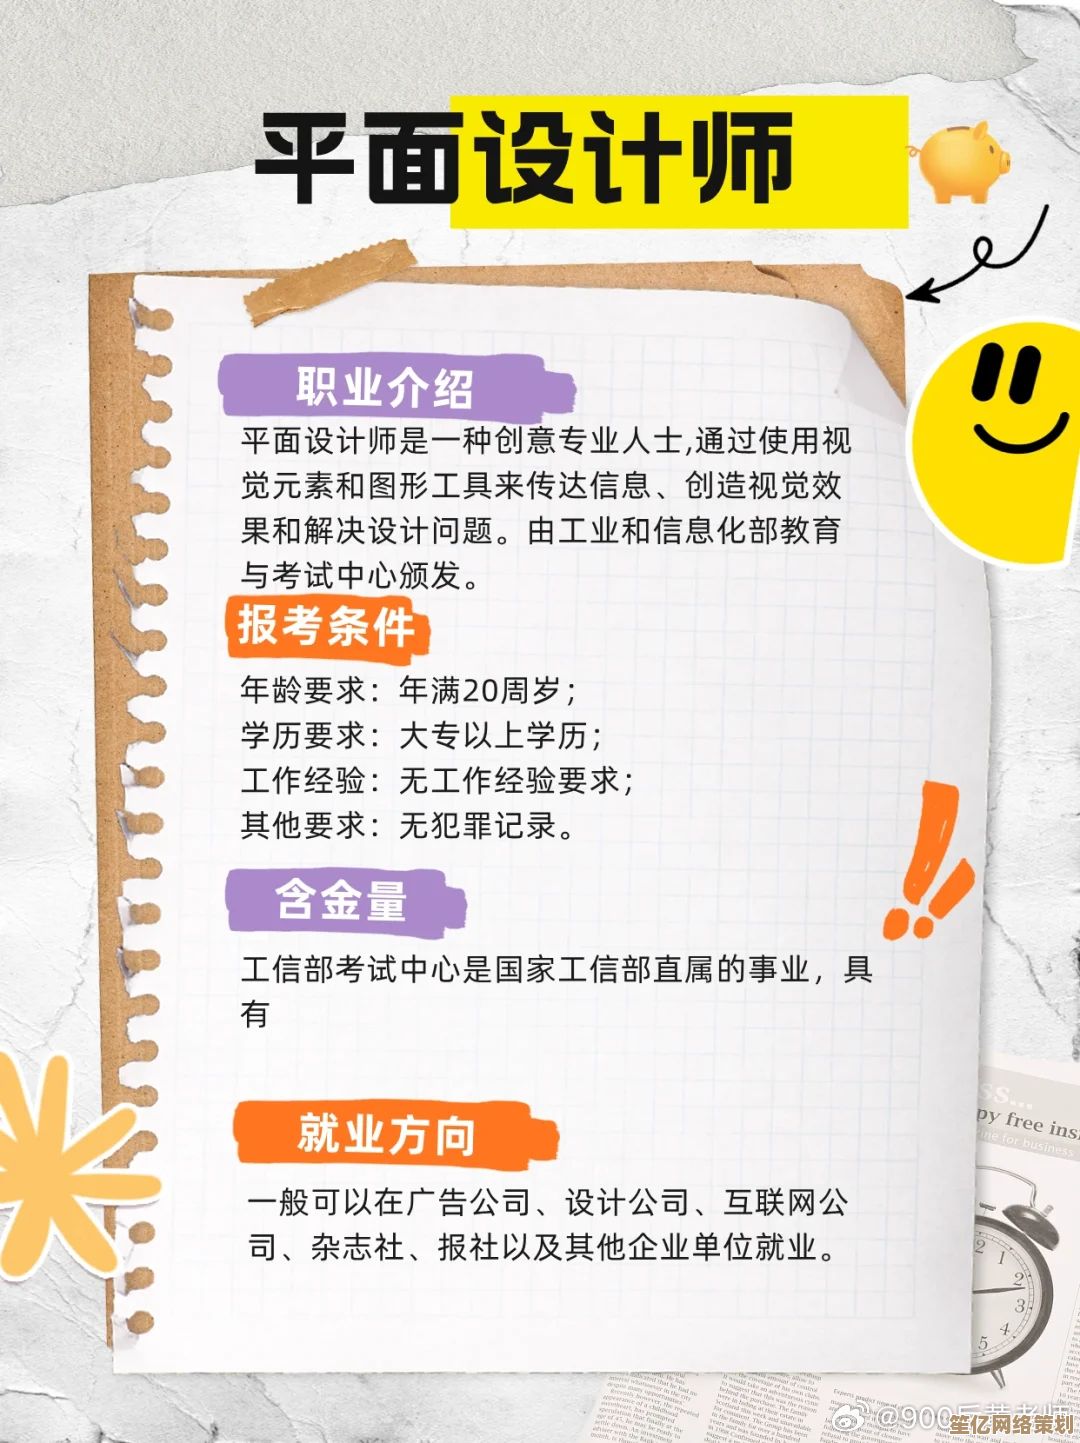 平面设计师
职业介绍
平面设计师是一种创意专业人士,通过使用视
觉元素和图形工具来传达信息、创造视觉效
果和解决设计问题。由工业和信息化部教育
与考试中心颁发。
报考条件
年龄要求：年满20周岁；
学历要求：大专以上学历；
工作经验：无工作经验要求；
其他要求：无犯罪记录。
含金量
工信部考试中心是国家工信部直属的事业，具
有
就业方向
一般可以在广告公司、设计公司、互联网公
司、杂志社、报社以及其他企业单位就业。
ss...
py free ins
ine for business
2
1
2
3
4
5
@900后黄老师
笙亿网络策划